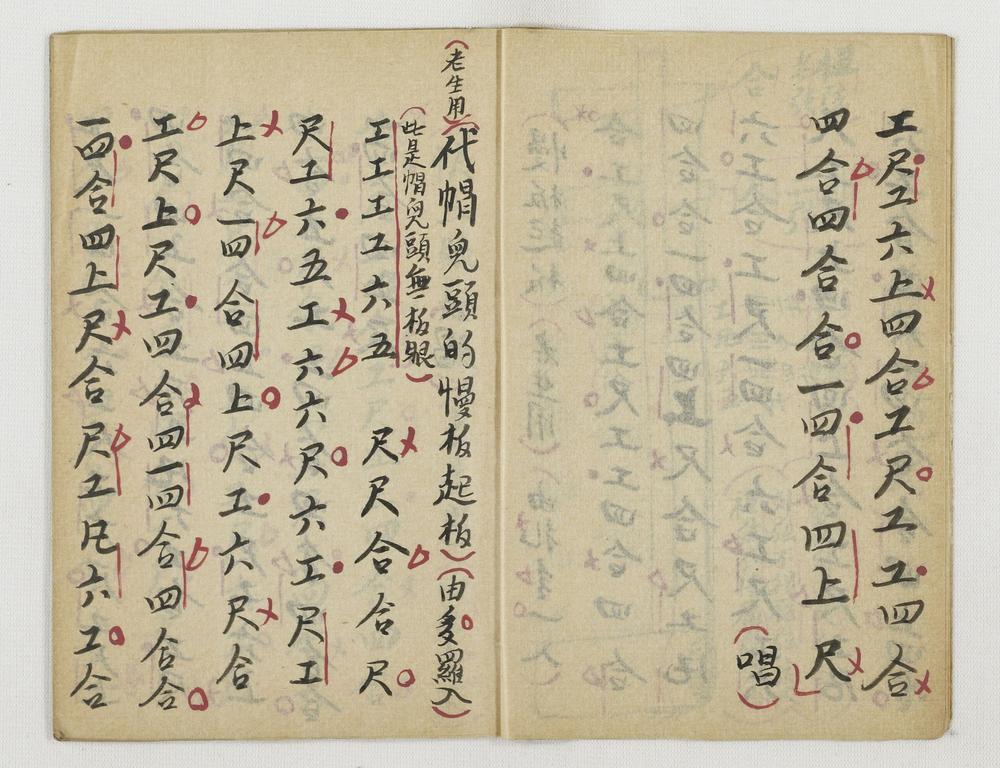 工尺工六上四合工尺工工四合
四合四合合一四合四上尺
(唱)
(老生用)(代帽兒頭的慢板起板)(由多羅入)
(此是帽兒頭無板眼)
工工工工六五 尺尺合合尺
尺工六五工六六尺六工尺工
上尺一四合四上尺工六尺合
工尺上尺工四合四一四合四合合
一四合四上尺合尺工凡六工合